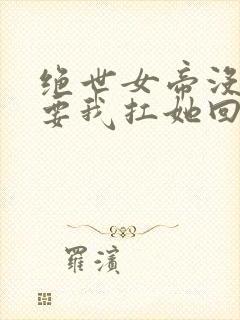 绝世女帝没
要我扛她回
羅濱